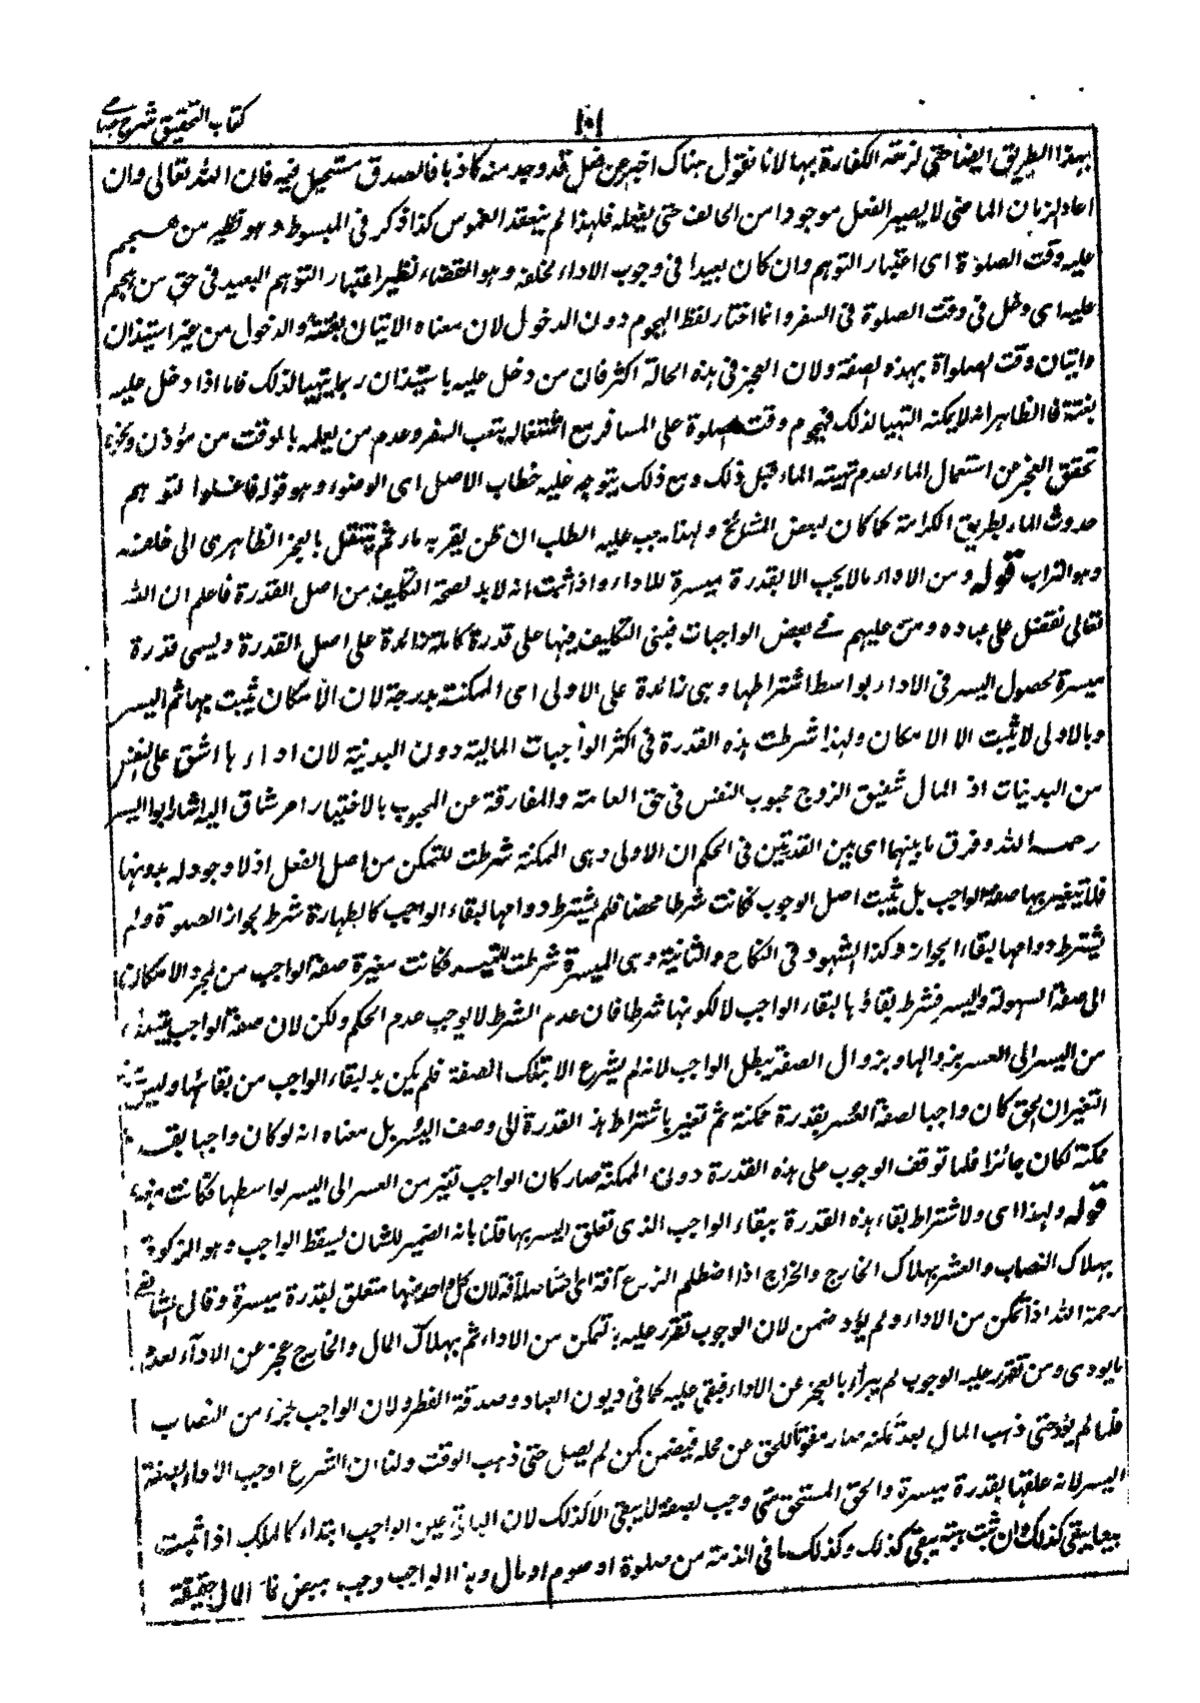 كتاب التحقيق شرح حسامى
١٠١
بهذا الطريق ايضا حتى لزمته الكفارة بها لانا نقول هناك اخبر عن فعل قد وجد منه كاذبا فالصدق مستحيل فيه فان الله تعالى وان
اعاد الزمان الماضى لا يصير الفعل موجودا من الحالف حتى يفعله فلهذا لم ينعقد الغموس كذا ذكر فى المبسوط وهو نظير من هجم
عليه وقت الصلوٰة اى اعتبار التوهم وان كان بعيدا فى وجوب الاداء لخلفه وهو القضاء نظير اعتبار التوهم البعيد فى حق من هجم
عليه اى دخل فى وقت الصلوة فى السفر وانما اختار لفظ الهجوم دون الدخول لان معناه الاتيان بغتة والدخول من غير استيذان
واتيان وقت الصلواة بهذه الصفة ولان العجز فى هذه الحالة اكثر فان من دخل عليه باستيذان ربما يتهيا لذلك فاما اذا دخل عليه
بغتة فالظاهر انه لا يمكنه التهيا لذلك فهجوم وقت الصلوة على المسافر مع اشتغاله بتعب السفر وعدم من يعلمه بالوقت من مؤذن ونحوه
تحقق العجز عن استعمال الماء لعدم تهيئة الماء قبل ذلك ومع ذلك يتوجه عليه خطاب الاصل اى الوضوء وهو قوله فاغسلوا لتوهم
حدوث الماء بطريق الكرامة كما كان لبعض المشائخ ولهذا يجب عليه الطلب ان ظن بقربه ماء ثم ينتقل بالعجز الظاهرى الى خلفه
وهو التراب قوله ومن الاداء ما لا يجب الا بقدرة ميسرة للاداء واذ اثبت انه لا بد لصحة التكليف من اصل القدرة فاعلم ان الله
تعالى تفضل على عباده ومن عليهم فى بعض الواجبات فبنى التكليف فيها على قدرة كاملة زائدة على اصل القدرة ويسمى قدرة
ميسرة لحصول اليسر فى الاداء بواسطة اشتراطها وهى زائدة على الاولى اى الممكنة بدرجة لان الامكان يثبت بها ثم اليسر
وبالاولى لا يثبت الا الامكان ولهذا شرطت هذه القدرة فى اكثر الواجبات المالية دون البدنية لان اداءها اشق على النفس
من البدنيات اذ المال شقيق الزوج محبوب النفس فى حق العامة والمفارقة عن المحبوب بالاختيار امر شاق اليه اشار ابو اليسر
رحمه الله وفرق ما بينهما اى بين القدرتين فى الحكم ان الاولى وهى الممكنة شرطت للتمكن من اصل الفعل اذ لا وجود له بدونها
فلا يتغير بها صفة الواجب بل يثبت اصل الوجوب فكانت شرطا محضا فلم يشترط دوامها لبقاء الواجب كالطهارة شرط لجواز الصلوة ولم
يشترط دوامها لبقاء الجواز وكذا الشهود فى النكاح والثانية وهى الميسرة شرطت للتيسير فكانت مغيرة صفة الواجب من مجرد الامكان
الى صفة السهولة واليسر فشرط بقاؤها لبقاء الواجب لا لكونها شرطا فان عدم الشرط لا يوجب عدم الحكم ولكن لان صفة الواجب
من اليسر الى العسر بزوالها وبزوال الصفة يبطل الواجب لانه لم يشرع الا بتلك الصفة فلم يكن بد لبقاء الواجب من بقائها وليس
التغير ان الحق كان واجبا لصفة العسر بقدرة ممكنة ثم تغير باشتراط هذه القدرة الى وصف اليسر بل معناه انه لو كان واجبا بقدرة
ممكنة لكان جائزا فلما توقف الوجوب على هذه القدرة دون الممكنة صار كان الواجب تغير من العسر الى اليسر بواسطتها فكانت مغيرة
قوله ولهذا اى ولاشتراط بقاء هذه القدرة ببقاء الواجب الذى تعلق اليسر بها قلنا بانه الضمير للشان يسقط الواجب وهو الزكوة
بهلاك النصاب والعشر بهلاك الخارج والخراج اذا اضطلم الزرع آفة اى استاصله آفة لان كل واحد منها متعلق بقدرة ميسرة وقال الشافعى
رحمة الله اذا تمكن من الاداء ولم يؤد ضمن لان الوجوب تقرر عليه بتمكن من الاداء ثم بهلاك المال والخارج عجز عن الادآء لعدم
ما يودى ومن تقرر عليه الوجوب لم يبرأ بالعجز عن الاداء فبقى عليه كما فى ديون العباد وصدقة الفطر ولان الواجب جزء من النصاب
فلما لم يؤد حتى ذهب المال بعد تمكنه صار مفوتا للحق عن محله فيضمن كمن لم يصل حتى ذهب الوقت ولنا ان الشرع اوجب الاداء بصفة
اليسر لانه علقها بقدرة ميسرة والحق المستحق متى وجب بصفة لا يبقى الا كذلك لان الباقى عين الواجب ابتداء كالملك اذا ثبت
بيعا يبقى كذلك وان ثبت هبة يبقى كذلك وكذلك ما فى الذمة من صلوة او صوم او مال وهذا الواجب وجب ببعض نماء المال حقيقة